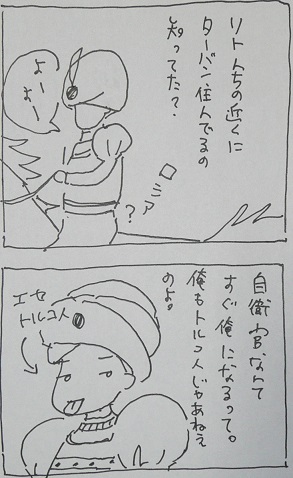 リトんちの近くに
ターバン住んでるの
知ってた？
よーよー
ロミア
？
自衛官なんて
すぐ俺になるって。
俺もトルコ人じゃあねえ
のよ。
エセ
トルコ人